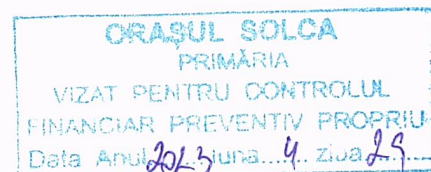 ORAŞUL SOLCA
PRIMĂRIA
VIZAT PENTRU CONTROLUL
FINANCIAR PREVENTIV PROPRIU
Data Anul 2023 luna...4.. ziua 29....